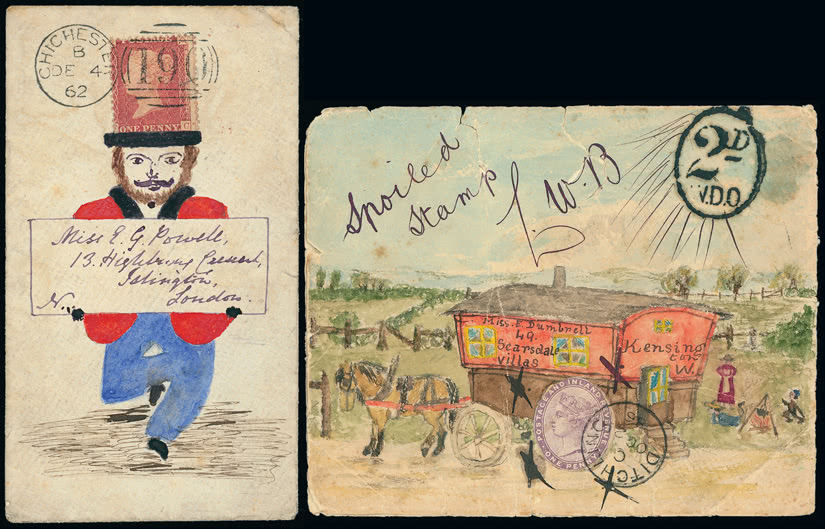 CHICHESTER
B
DE 4
62
190
ONE PENNY
C
Miss E. G. Powell,
13. Highbury Crescent,
Islington,
London.
N.
Spoiled
stamp
W.B
2D
V.D.O.
Miss. E. Dumbrell
49.
Scarsdale
Villas
Kensing
ton
W.
POSTAGE AND INLAND REVENUE
ONE PENNY
DITCHLING